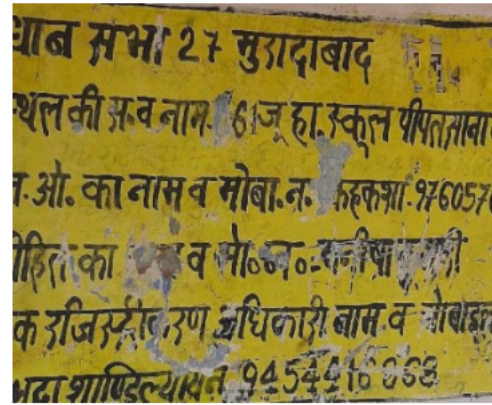 धान सभा 27 मुरादाबाद
थल की स.व नाम. 61 जू हा. स्कूल पीपलसाना
.ओ. का नाम व मोबा.न. कहकशा. 976057
का व मो०न०
क रजिस्ट्रीकरण अधिकारी नाम व मोबाइल
शाण्डिल्यायन 9454416868